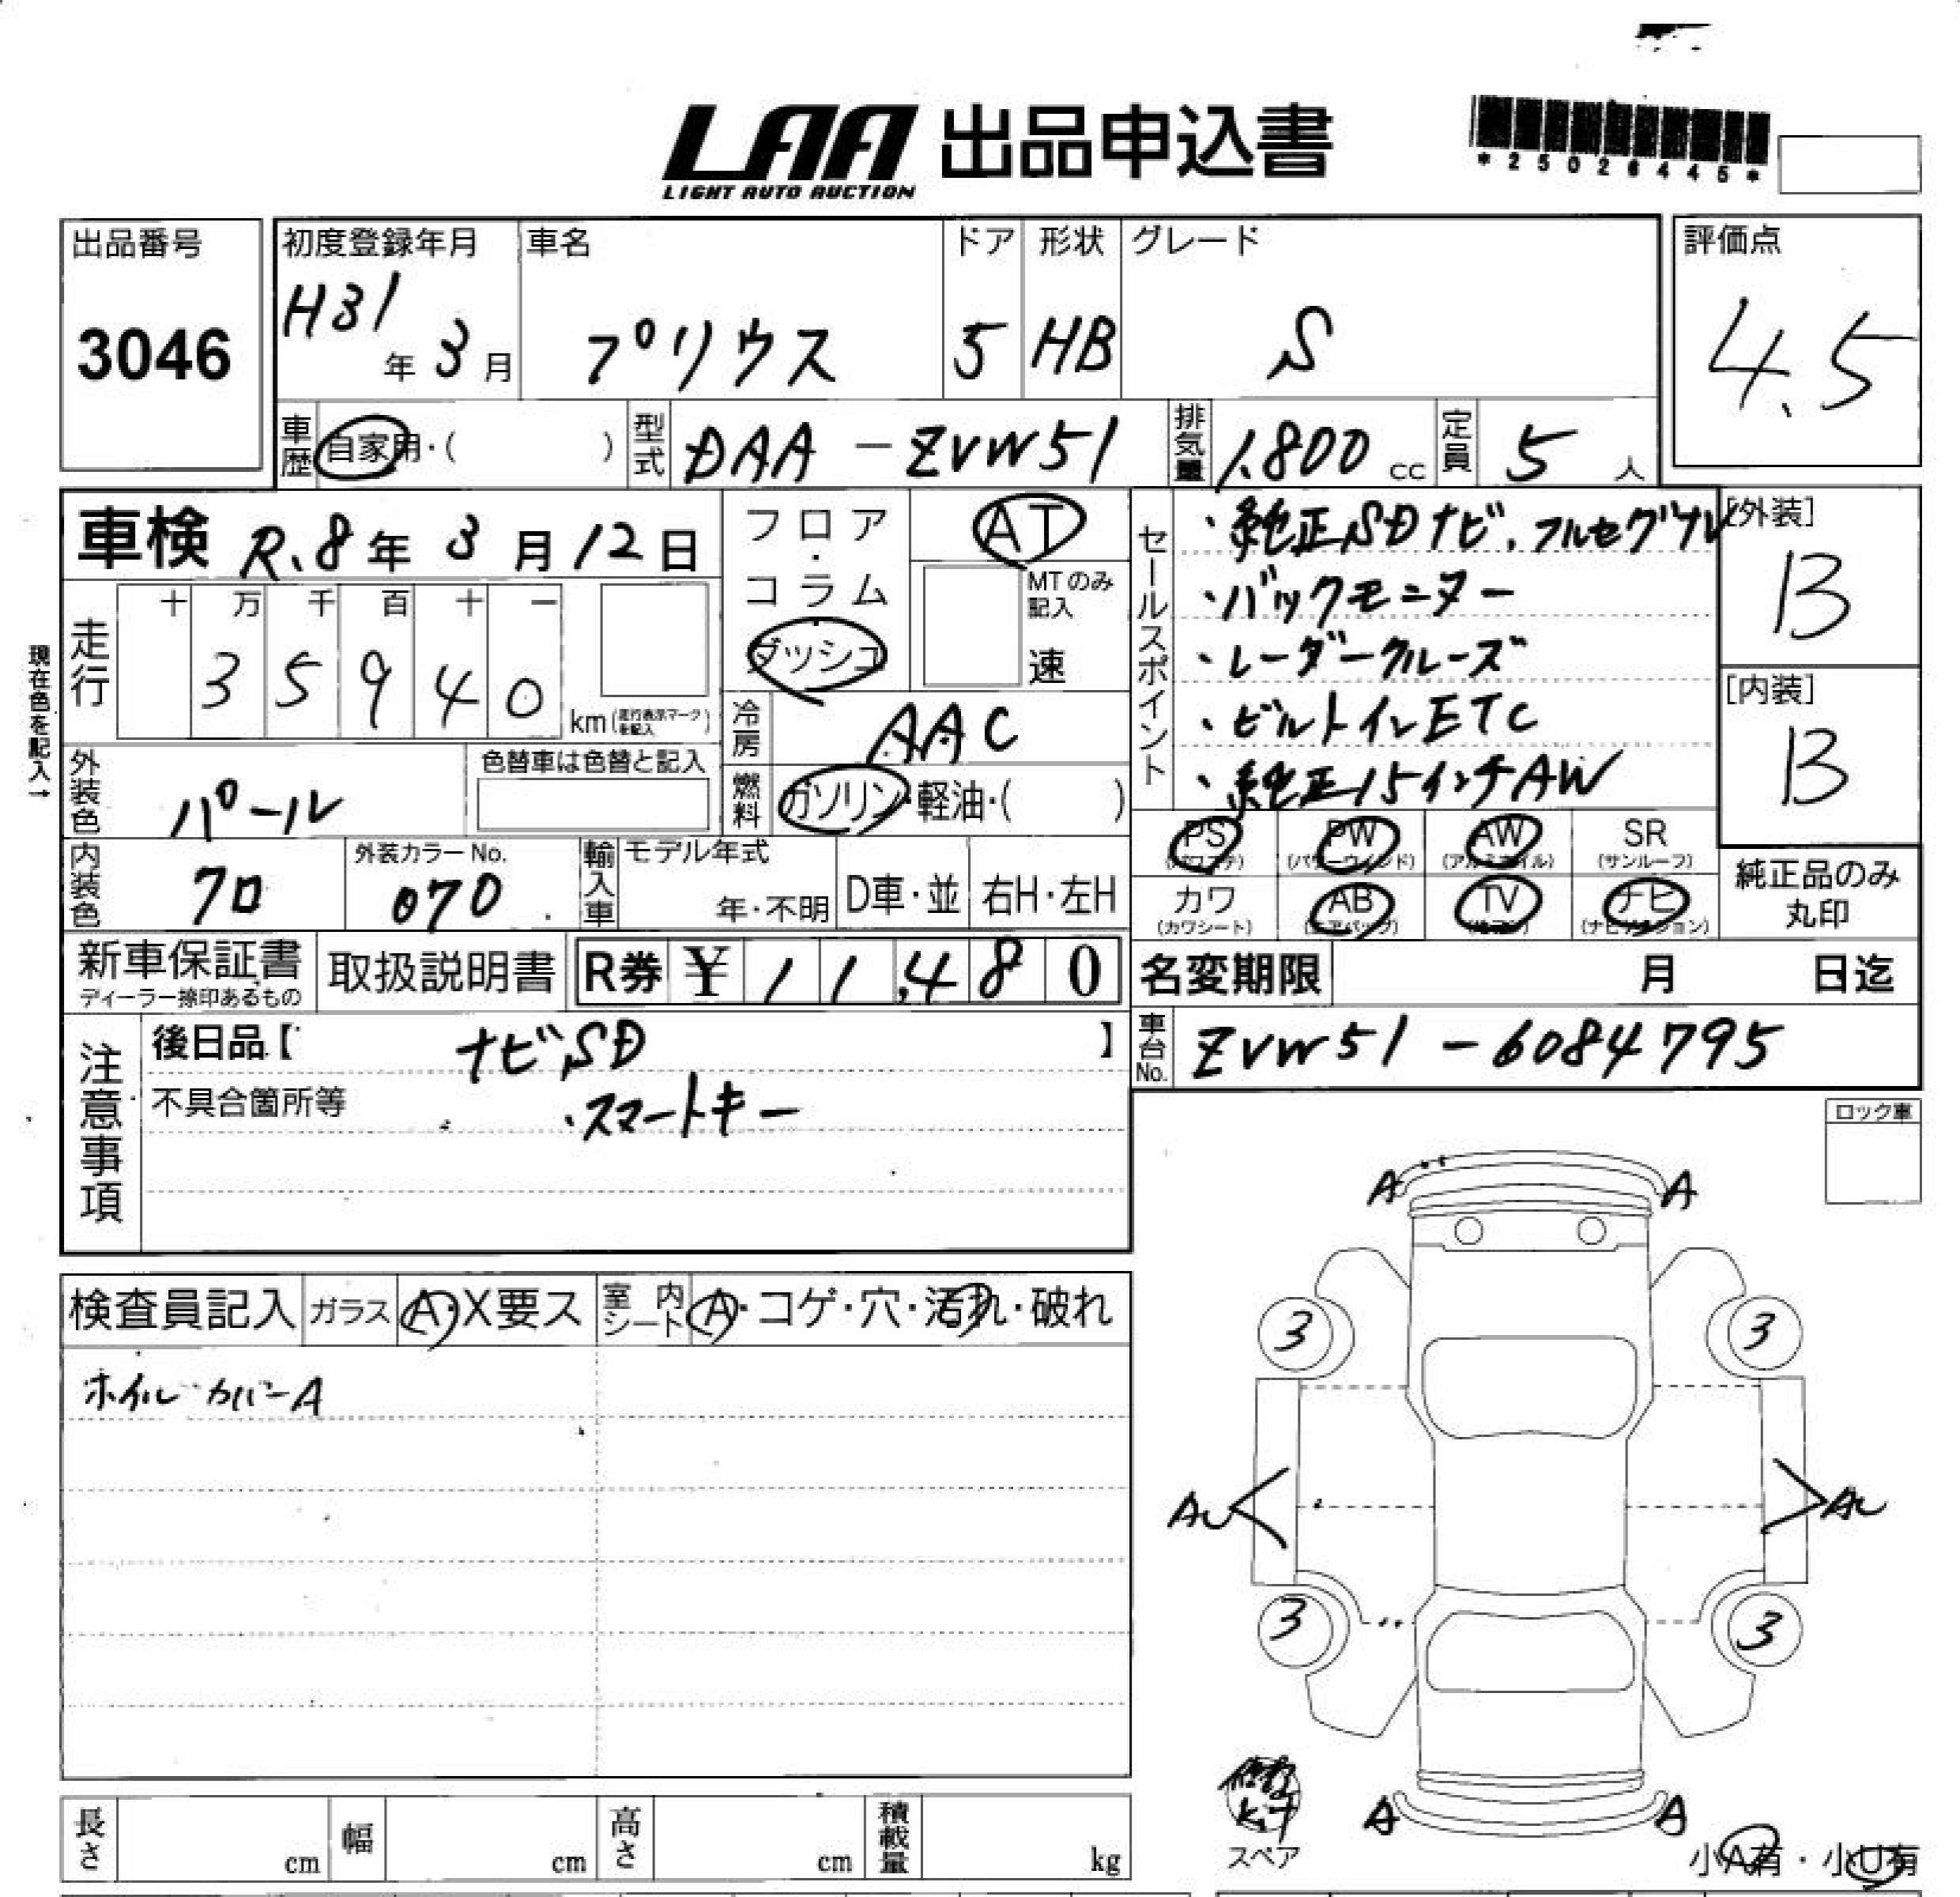 LAA 出品申込書
LIGHT AUTO AUCTION
*25026445*
出品番号
3046
初度登録年月
H31年3月
車名
プリウス
ドア
5
形状
HB
グレード
S
評価点
4.5
車歴 自家用・( )
型式 DAA-ZVW51
排気量 1,800 cc
定員 5 人
車検 R.8年3月12日
走行
十 万 千 百 十 一
3 5 9 4 0
km(走行表示マークを記入)
現在色を記入→
フロア・コラム
ダッシュ
AT
MTのみ記入
速
冷房 AAC
燃料 ガソリン・軽油・( )
セールスポイント
・純正SDナビ、フルセグTV
・バックモニター
・レーダークルーズ
・ビルトインETC
・純正15インチAW
[外装]
B
[内装]
B
外装色 パール
色替車は色替と記入
内装色 クロ
外装カラーNo.
070
輸入車
モデル年式
年・不明
D車・並
右H・左H
PS (パワステ)
PW (パワーウィンド)
AW (アルミホイル)
SR (サンルーフ)
カワ (カワシート)
AB (エアバッグ)
TV (テレビ)
ナビ (ナビゲーション)
純正品のみ丸印
新車保証書
ディーラー捺印あるもの
取扱説明書
R券 ¥11,480
名変期限 月 日迄
車台No. ZVW51-6084795
注意事項
後日品【 ナビSD 】
不具合箇所等
・スマートキー
ロック車
検査員記入
ガラス A・X要ス
室内シート A・コゲ・穴・汚れ・破れ
ホイルカバーA
A A
3 3
AU AU
3 3
A A
スペア
小A有・小U有
長さ cm
幅 cm
高さ cm
積載量 kg